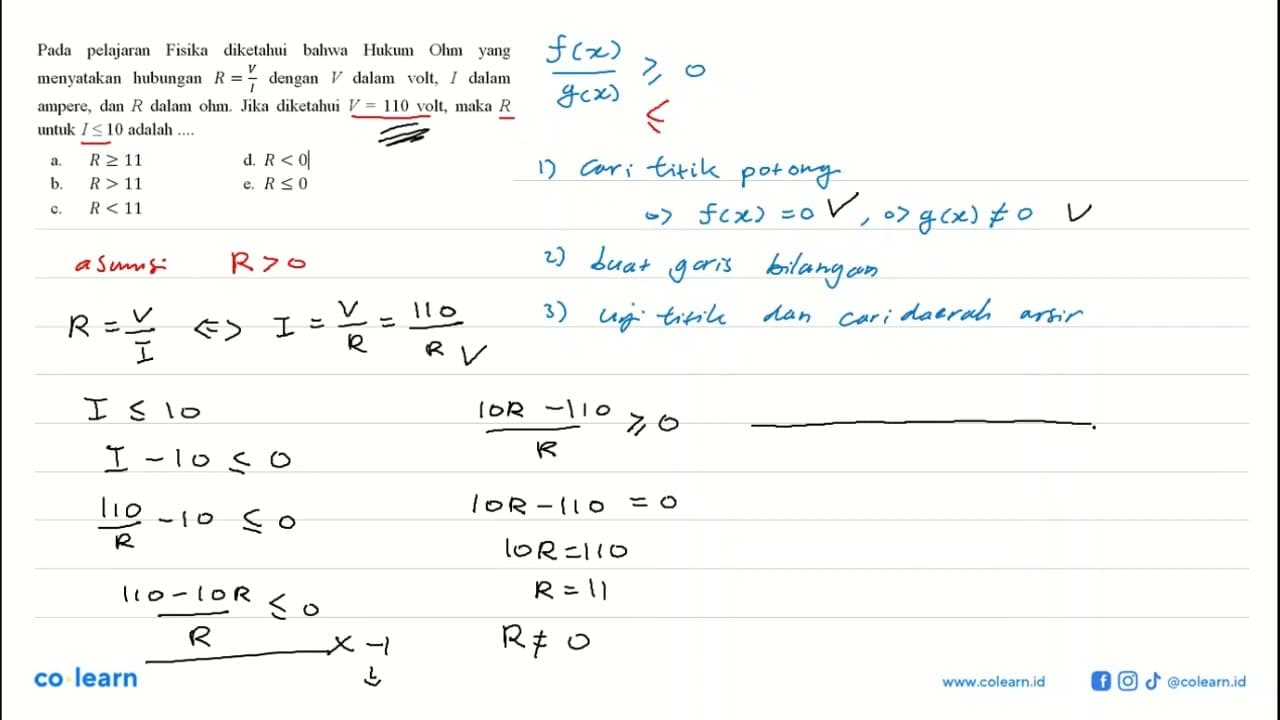 Pada pelajaran Fisika diketahui bahwa Hukum Ohm yang
menyatakan hubungan R = V/I dengan V dalam volt, I dalam
ampere, dan R dalam ohm. Jika diketahui V = 110 volt, maka R
untuk I ≤ 10 adalah ....
a. R ≥ 11 d. R < 0
b. R > 11 e. R ≤ 0
c. R < 11
f(x)/g(x) ≥ 0
≤
1) cari titik potong
=> f(x) = 0 ✓, => g(x) ≠ 0 ✓
2) buat garis bilangan
3) uji titik dan cari daerah arsir
asumsi R > 0
R = V/I <=> I = V/R = 110/R ✓
I ≤ 10
I - 10 ≤ 0
110/R - 10 ≤ 0
(110 - 10R)/R ≤ 0
x -1
↓
(10R - 110)/R ≥ 0
10R - 110 = 0
10R = 110
R = 11
R ≠ 0
co learn
www.colearn.id
@colearn.id